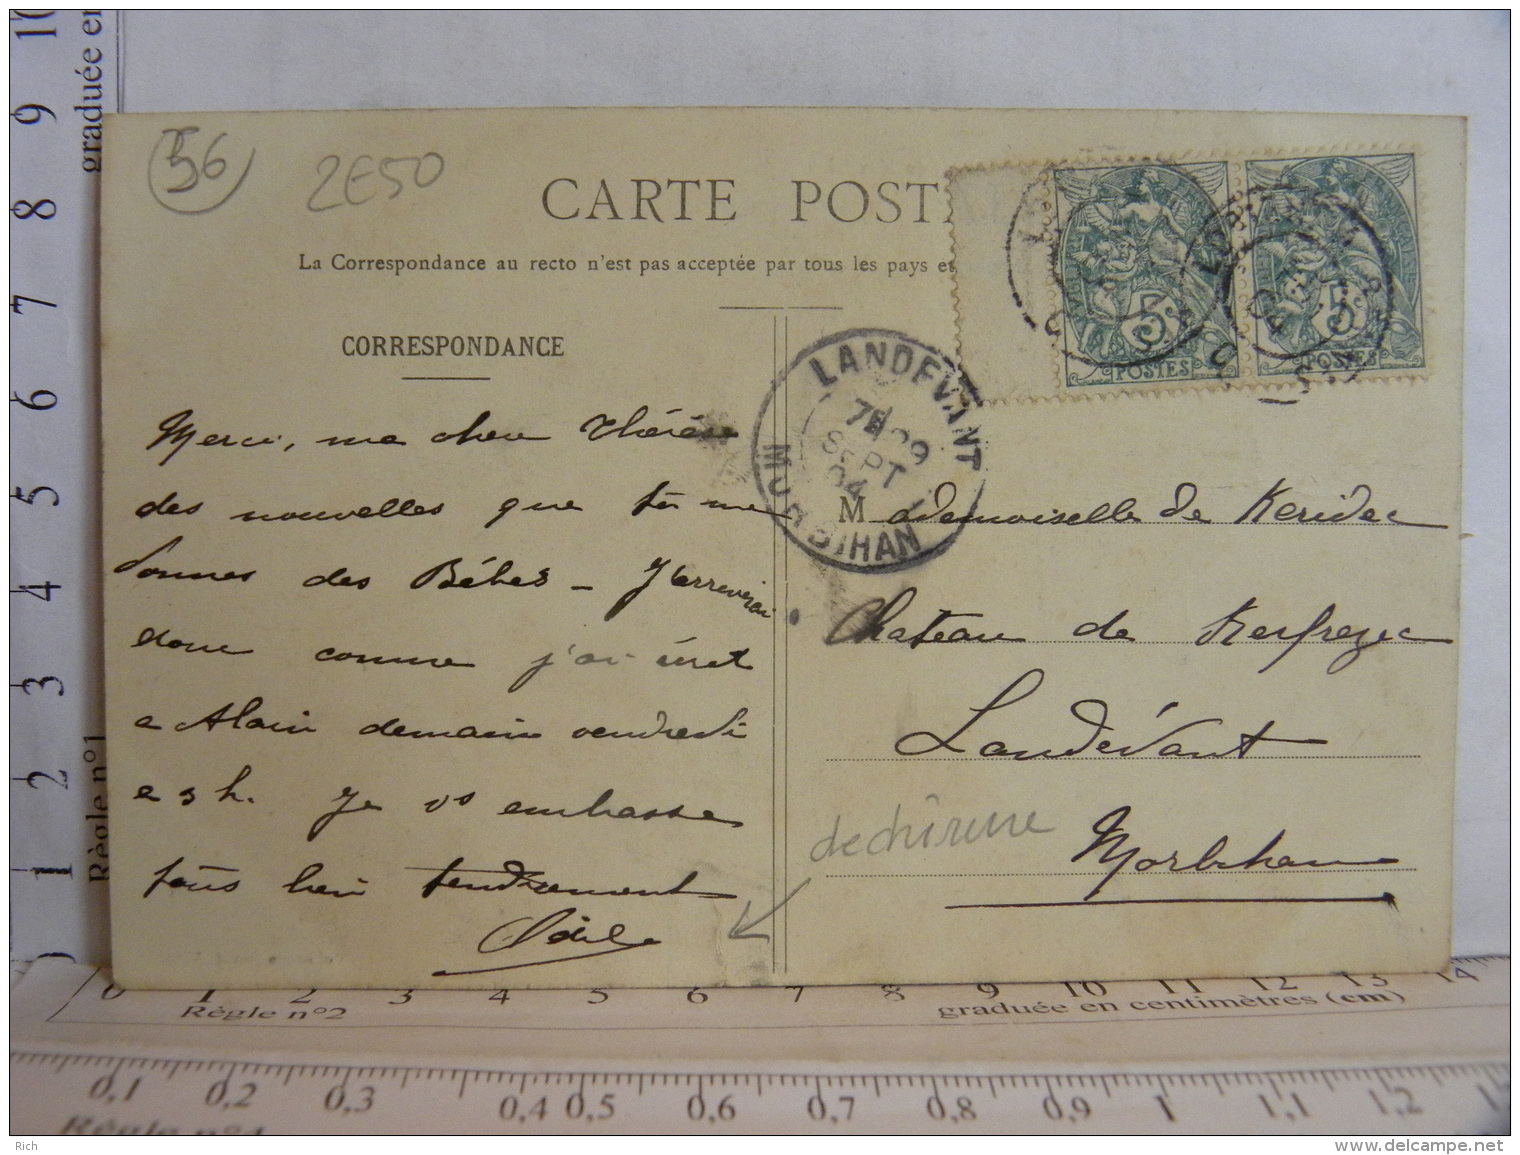 56
2E50
CARTE POSTA
La Correspondance au recto n'est pas acceptée par tous les pays et
CORRESPONDANCE
Merci, ma chère Thérèse
des nouvelles que tu me
donnes des Bébés – J'arriverai
donc comme j'ai écrit
a Alain demain vendredi
a 3 h. Je vs embrasse
tous bien tendrement
5c
POSTES
5c
POSTES
LANDEVANT
7E
SEPT
04
MORBIHAN
Mademoiselle de Keridec
Chateau de Kerfrezec
Landévant
Morbihan
dechirure
10
9
8
7
6
5
4
3
2
1
0
graduée en
Règle n°1
0 1 2 3 4 5 6 7 8 9 10 11 12 13 14
Règle n°2
graduée en centimètres (cm)
0,1 0,2 0,3 0,4 0,5 0,6 0,7 0,8 0,9 1 1,1 1,2
Règle n°4
Rich
www.delcampe.net